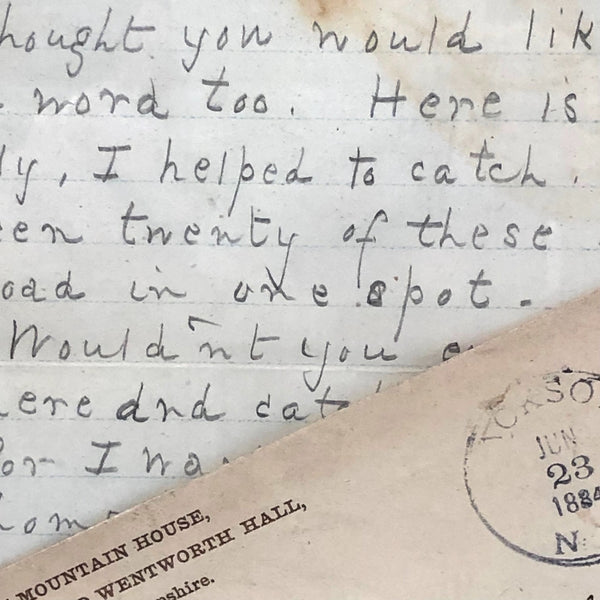 hought you would lik
word too. Here is
ly, I helped to catch.
een twenty of these
oad in one spot.
Wouldn't you
here and cat
for I wa
home
MOUNTAIN HOUSE,
WENTWORTH HALL,
pshire.
CKSO
JUN
23
1884
N